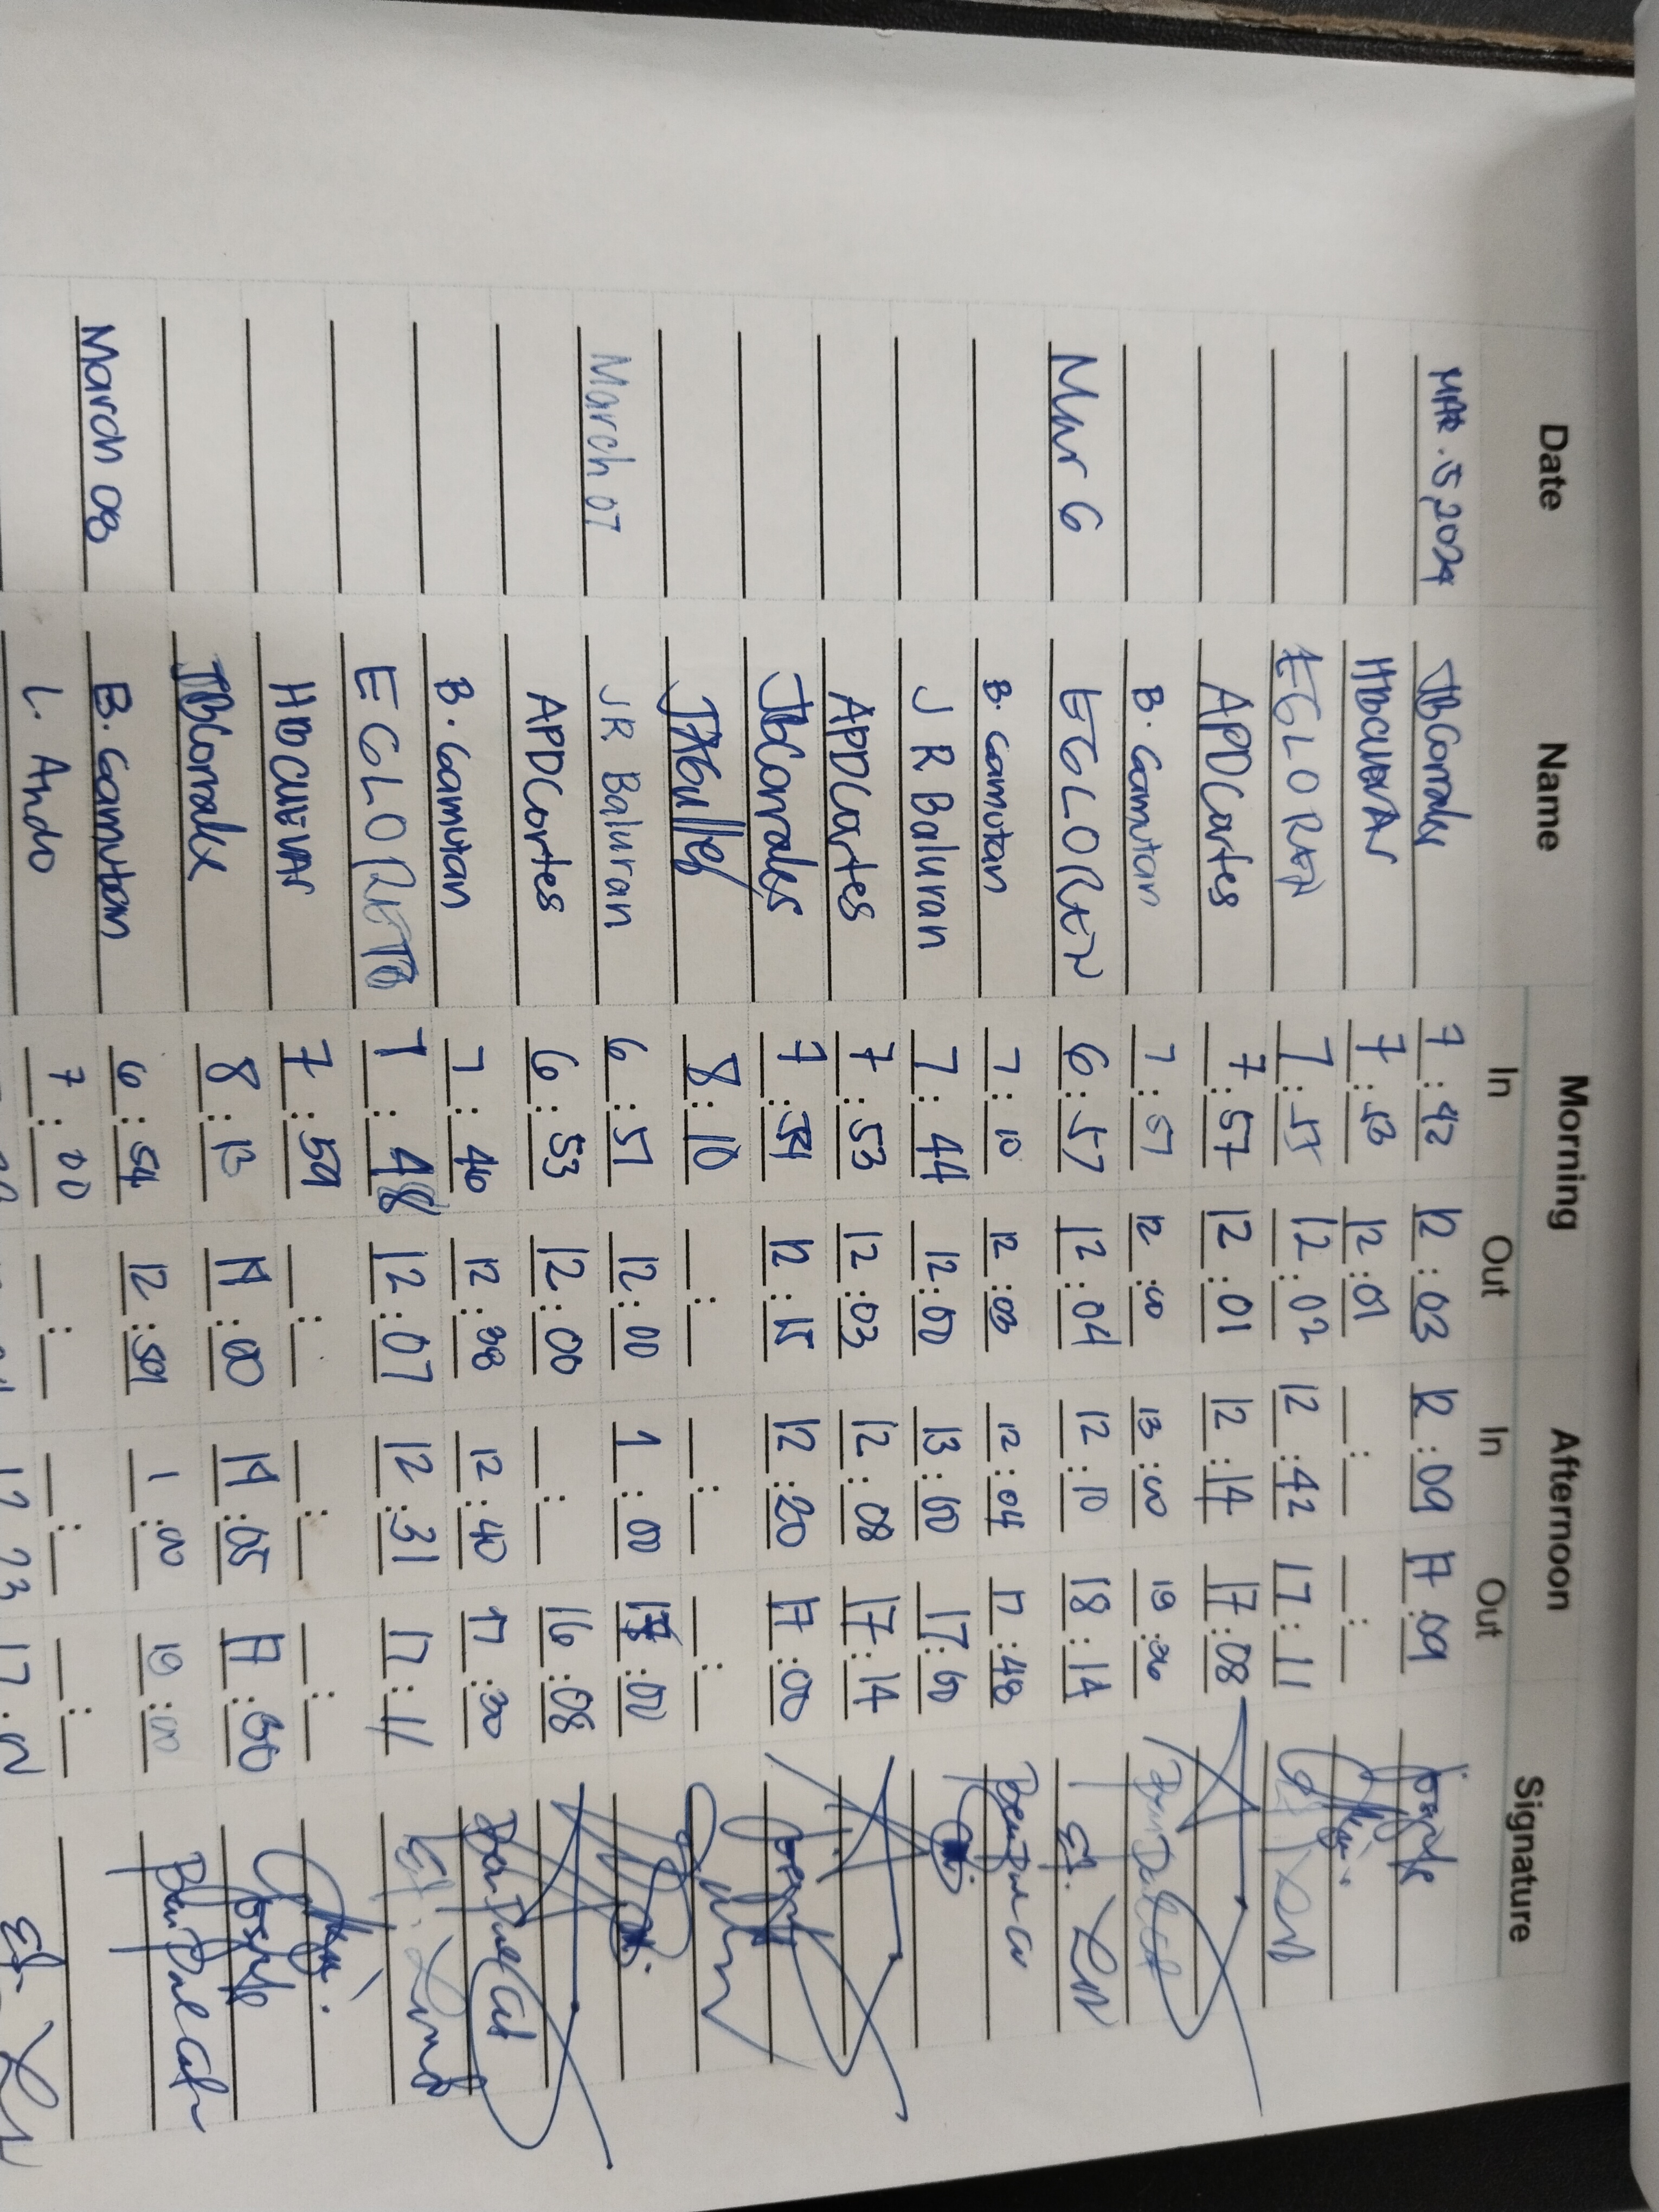 Date Name Morning Afternoon Signature
In Out In Out
MAR. 5, 2024 JBCorrales 7:42 12:03 12:09 17:09
HBCUEVAS 7:53 12:01 __:__ __:__
EGLOREN 7:55 12:02 12:42 17:11
APDCortes 7:57 12:01 12:14 17:08
B. Gamutan 7:57 12:00 13:00 19:06
Mar 6 EGLOREN 6:57 12:04 12:10 18:14
B. Gamutan 7:10 12:03 12:04 17:48
JR Baluran 7:44 12:00 13:00 17:00
APDCortes 7:53 12:03 12:08 17:14
JBCorrales 7:54 12:15 12:20 17:00
8:10 __:__ __:__ __:__
March 07 JR Baluran 6:51 12:00 1:00 :00
APDCortes 6:53 12:00 __:__ 16:08
B. Gamutan 7:46 12:38 12:40 17:30
EGLORETO 7:48 12:07 12:31 17:11
HBCUEVAS 7:59 __:__ __:__ __:__
JBCorrales 8:13 14:00 14:05 17:30
March 08 B. Gamutan 6:54 12:59 1:00 19:00
L. Ando 7:00 __:__ __:__ __:__